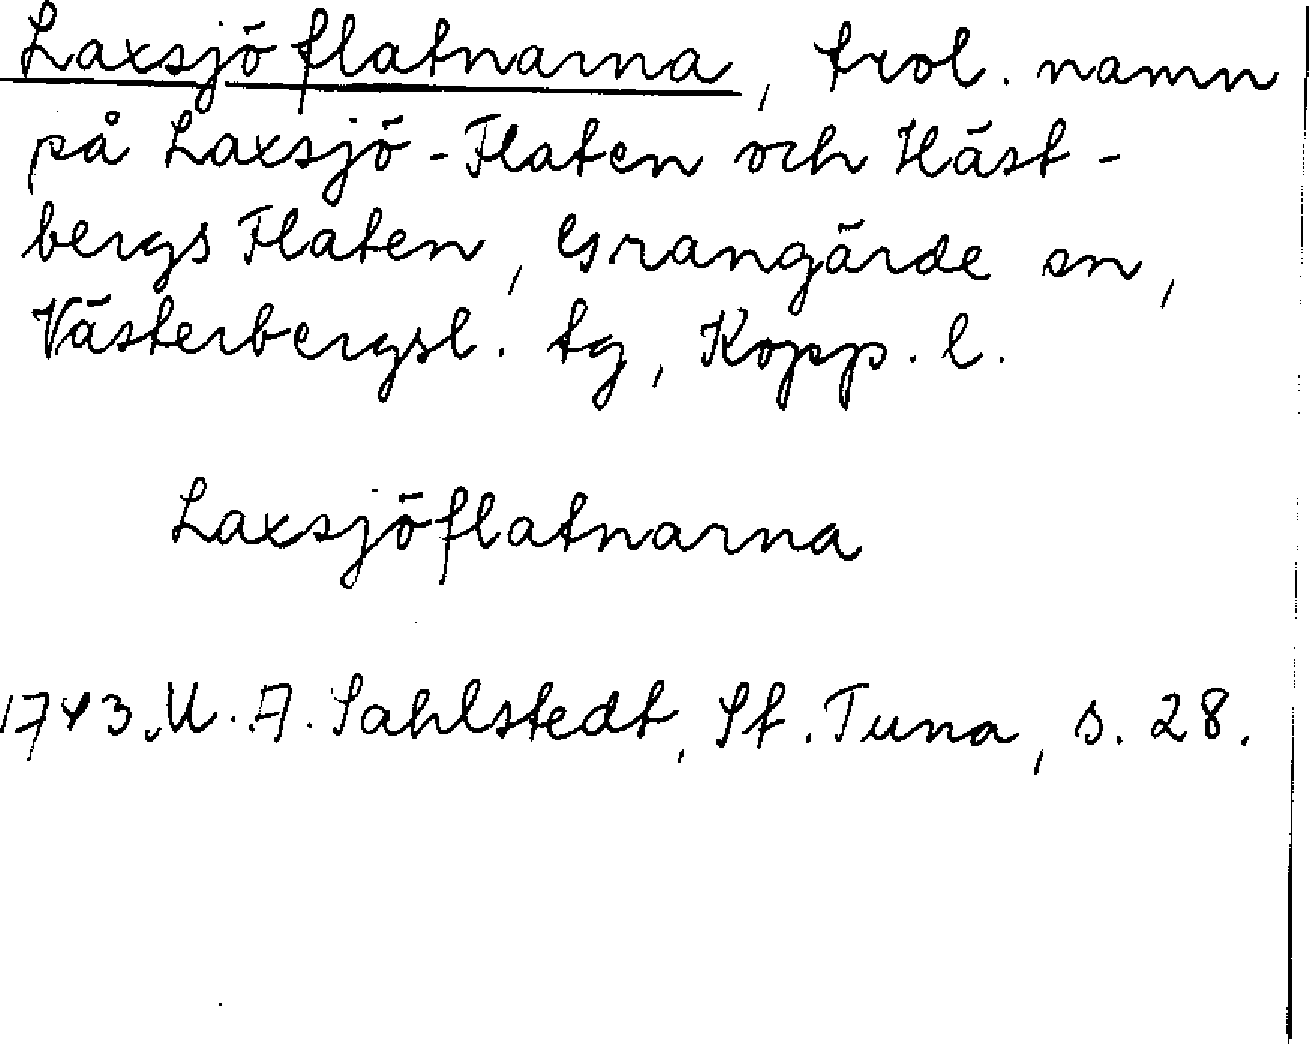 Laxsjöflatnarna, trol. namn
på Laxsjö-Flaten och Häst-
bergs Flaten, Grangärde sn,
Västerbergsl. tg, Kopp. l.
Laxsjöflatnarna
1743. U. A. Sahlstedt, St. Tuna, s. 28.